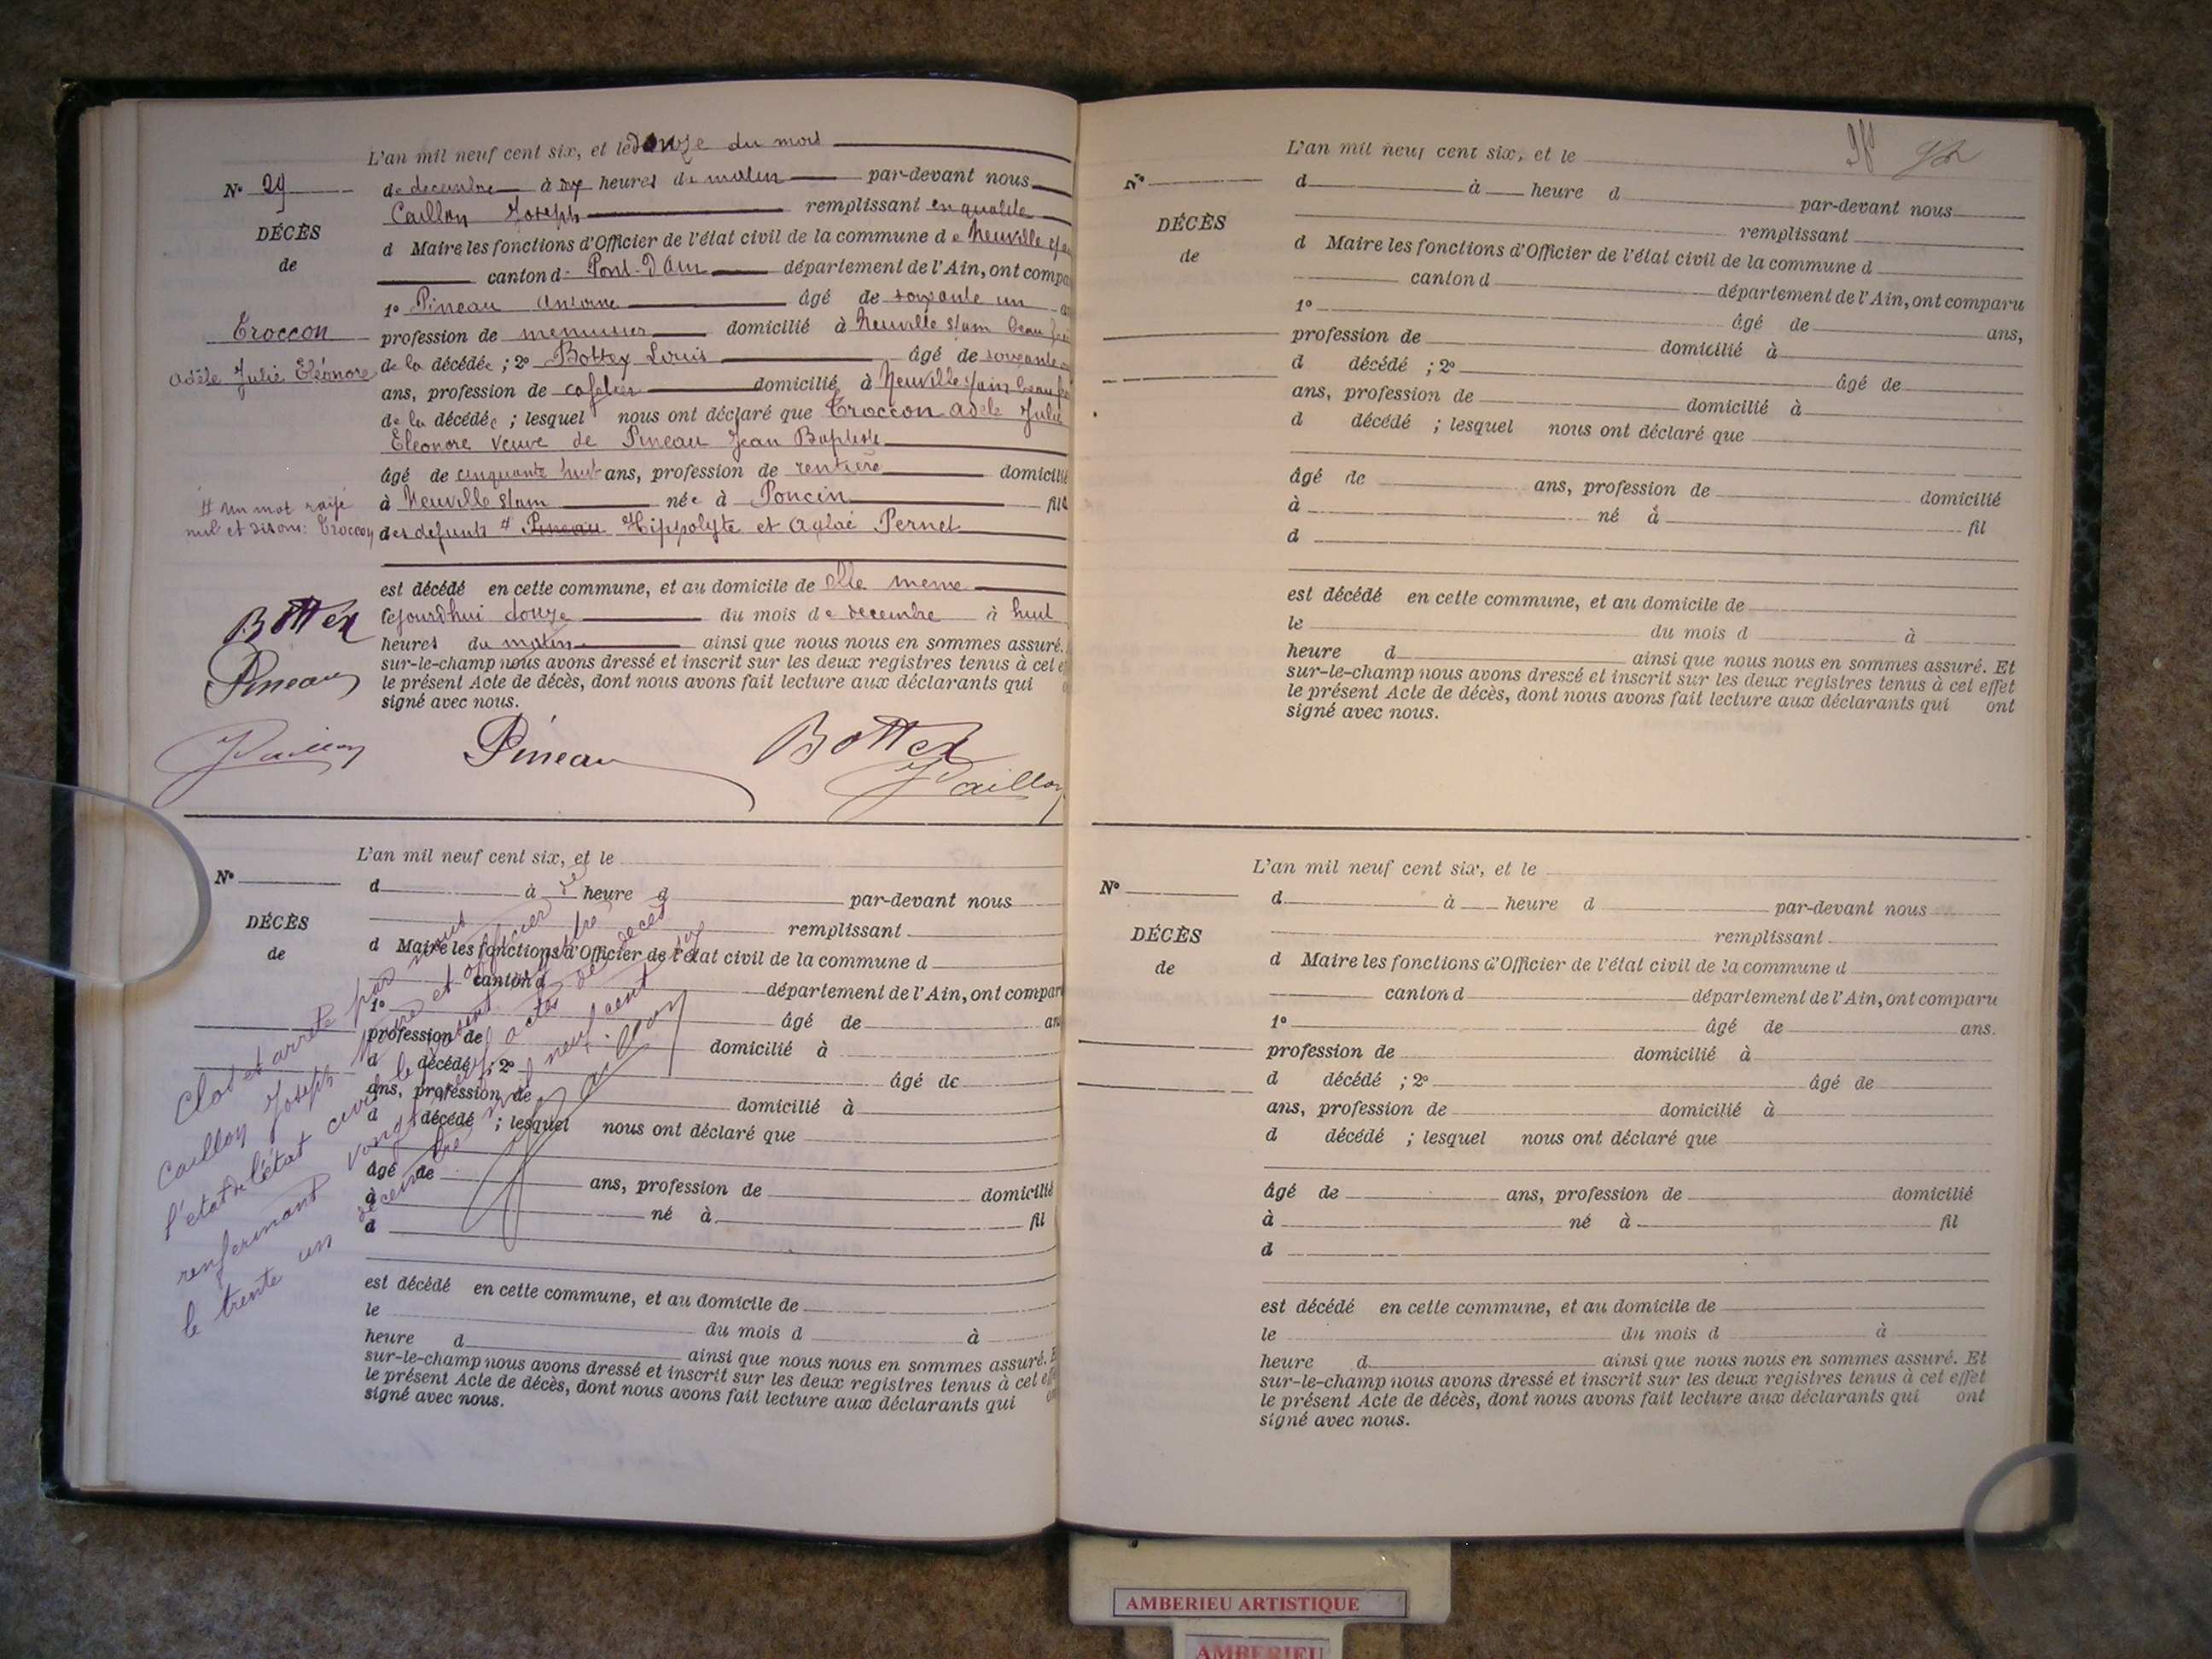 L'an mil neuf cent six, et le douze du mois
N° 29
de decembre à dix heures du matin par-devant nous
Caillon Joseph remplissant en qualité
DÉCÈS
de
d Maire les fonctions d'Officier de l'état civil de la commune de Neuville s/ain
canton d. Pont-d'Ain département de l'Ain, ont compa
1° Pineau Antoine âgé de soixante un
Troccon
Adèle Julie Eléonore
profession de menuisier domicilié à Neuville s/ain beau
de la décédée ; 2° Bottex Louis âgé de soixante
ans, profession de cafetier domicilié à Neuville s/ain beau
de la décédée ; lesquel nous ont déclaré que Troccon Adele Julie
Eleonore veuve de Pineau Jean Baptiste
âgé de cinquante huit ans, profession de rentière domicilié
à Neuville s/ain née à Poncin fille
# un mot rayé
nul et disons: Troccon
des defunts # Pineau Hippolyte et Aglaé Pernet
est décédé en cette commune, et au domicile de elle meme
le jourdhui douze du mois de decembre à huit
heures du matin ainsi que nous nous en sommes assuré.
sur-le-champ nous avons dressé et inscrit sur les deux registres tenus à cet e
le présent Acte de décès, dont nous avons fait lecture aux déclarants qui
signé avec nous.
Bottex
Pineau
J Caillon
Pineau
Bottex
J Caillon
L'an mil neuf cent six, et le
N°
d à heure d par-devant nous
remplissant
DÉCÈS
de
d Maire les fonctions d'Officier de l'état civil de la commune d
canton d département de l'Ain, ont compar
1° âgé de an
profession de domicilié à
d décédé ; 2° âgé de
ans, profession de domicilié à
d décédé ; lesquel nous ont déclaré que
âgé de ans, profession de domicilié
à né à fil
d
est décédé en cette commune, et au domicile de
le du mois d à
heure d ainsi que nous nous en sommes assuré. E
sur-le-champ nous avons dressé et inscrit sur les deux registres tenus à cet effe
le présent Acte de décès, dont nous avons fait lecture aux déclarants qui on
signé avec nous.
Clos et arreté par nous
Caillon Joseph Maire et officier de
l'etat de l'état civil le present registre
renfermant vingt neuf actes de décès
le trente un décembre mil neuf cent six
J Caillon
L'an mil neuf cent six, et le
N°
d à heure d par-devant nous
remplissant
DÉCÈS
de
d Maire les fonctions d'Officier de l'état civil de la commune d
canton d département de l'Ain, ont comparu
1° âgé de ans,
profession de domicilié à
d décédé ; 2° âgé de
ans, profession de domicilié à
d décédé ; lesquel nous ont déclaré que
âgé de ans, profession de domicilié
à né à fil
d
est décédé en cette commune, et au domicile de
le du mois d à
heure d ainsi que nous nous en sommes assuré. Et
sur-le-champ nous avons dressé et inscrit sur les deux registres tenus à cet effet
le présent Acte de décès, dont nous avons fait lecture aux déclarants qui ont
signé avec nous.
L'an mil neuf cent six, et le
N°
d à heure d par-devant nous
remplissant
DÉCÈS
de
d Maire les fonctions d'Officier de l'état civil de la commune d
canton d département de l'Ain, ont comparu
1° âgé de ans.
profession de domicilié à
d décédé ; 2° âgé de
ans, profession de domicilié à
d décédé ; lesquel nous ont déclaré que
âgé de ans, profession de domicilié
à né à fil
d
est décédé en cette commune, et au domicile de
le du mois d à
heure d ainsi que nous nous en sommes assuré. Et
sur-le-champ nous avons dressé et inscrit sur les deux registres tenus à cet effet
le présent Acte de décès, dont nous avons fait lecture aux déclarants qui ont
signé avec nous.
AMBERIEU ARTISTIQUE
AMBERIEU